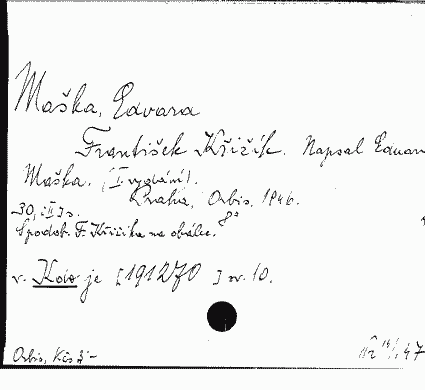 Maška, Edvard
František Křižík. Napsal Eduar
Maška. (I. vydání).
Praha, Orbis, 1946.
8°
30, [II] s.
Spodob. F. Křižíka na obálce.
v. je [191270 ] sv. 10.
Orbis, Kčs 3·–
47